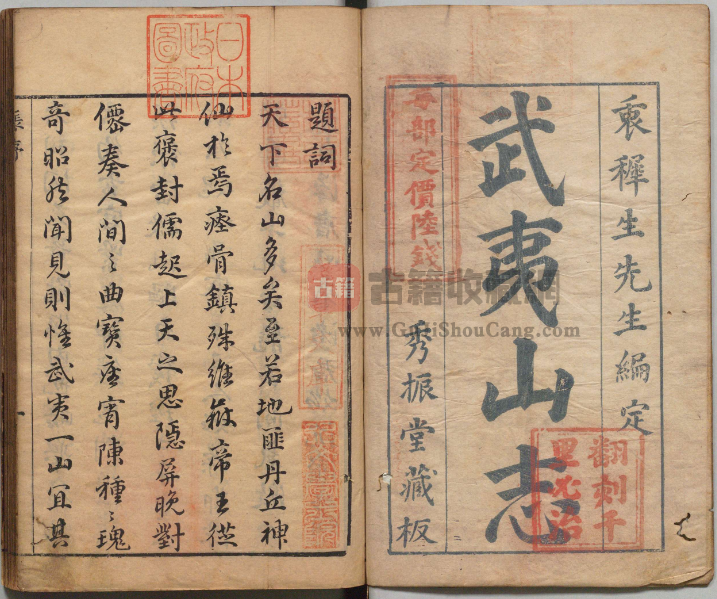 衷穉生先生編定
武夷山志
秀振堂藏板
每部定價陸錢
翻刻千里必治
古籍
古籍收藏網
www.GuJiShouCang.com
日本
政府
圖書
題詞
天下名山多矣至若地匪丹丘神
仙於焉瘞骨鎮殊維嶽帝王從
此褒封儒起上天之思隱屏晚對
僊奏人間之曲寶座宵陳種〻瑰
奇昭然聞見則惟武夷一山宜其